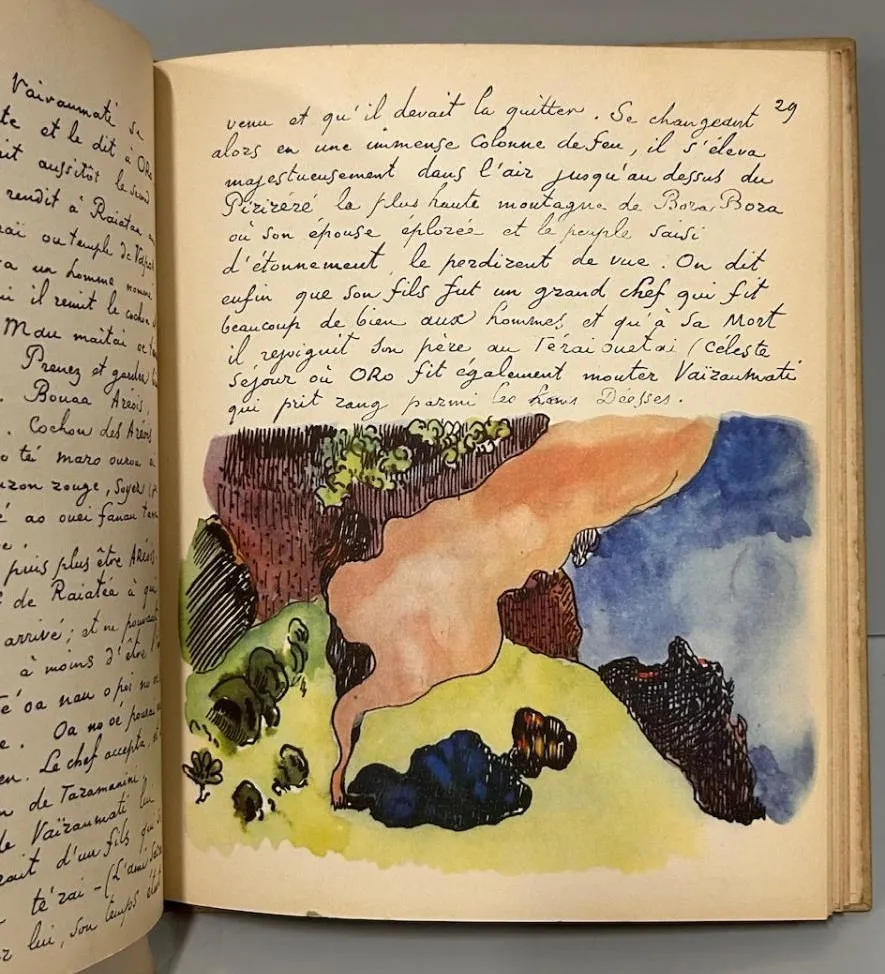 Vaïraumati se
te et le dit à ORo
it aussitôt le
rendit à Raiatea
raï ou temple de
a un homme nommé
i il remit le cochon
Mau maitaï
Prenez et gardez
. Bouaa Aréoïs,
. Cochon des Aréoïs
o té maro ouroa
rouge, soyez
é ao ouei fanau
puis plus être Aréoïs
de Raiatéa à qui
arrivé ; et ne pouvant
à moins d'être
té oa nau o
e. Oa no oé
en. Le chef accepta,
n de Taramanini
de Vaïraumati lui
rait d'un fils qui
té rai – (L'ami
lui, son temps était
29
venu et qu'il devait la quitter. Se changeant
alors en une immense Colonne de feu, il s'éleva
majestueusement dans l'air jusqu'au dessus du
Piriréré la plus haute montagne de Bora Bora
où son épouse éplorée et le peuple saisi
d'étonnement, le perdirent de vue. On dit
enfin que son fils fut un grand chef qui fit
beaucoup de bien aux hommes, et qu'à sa Mort
il rejoignit son père au Téraï ouetai (céleste
séjour où ORo fit également monter Vaïraumati
qui prit rang parmi les Déesses.